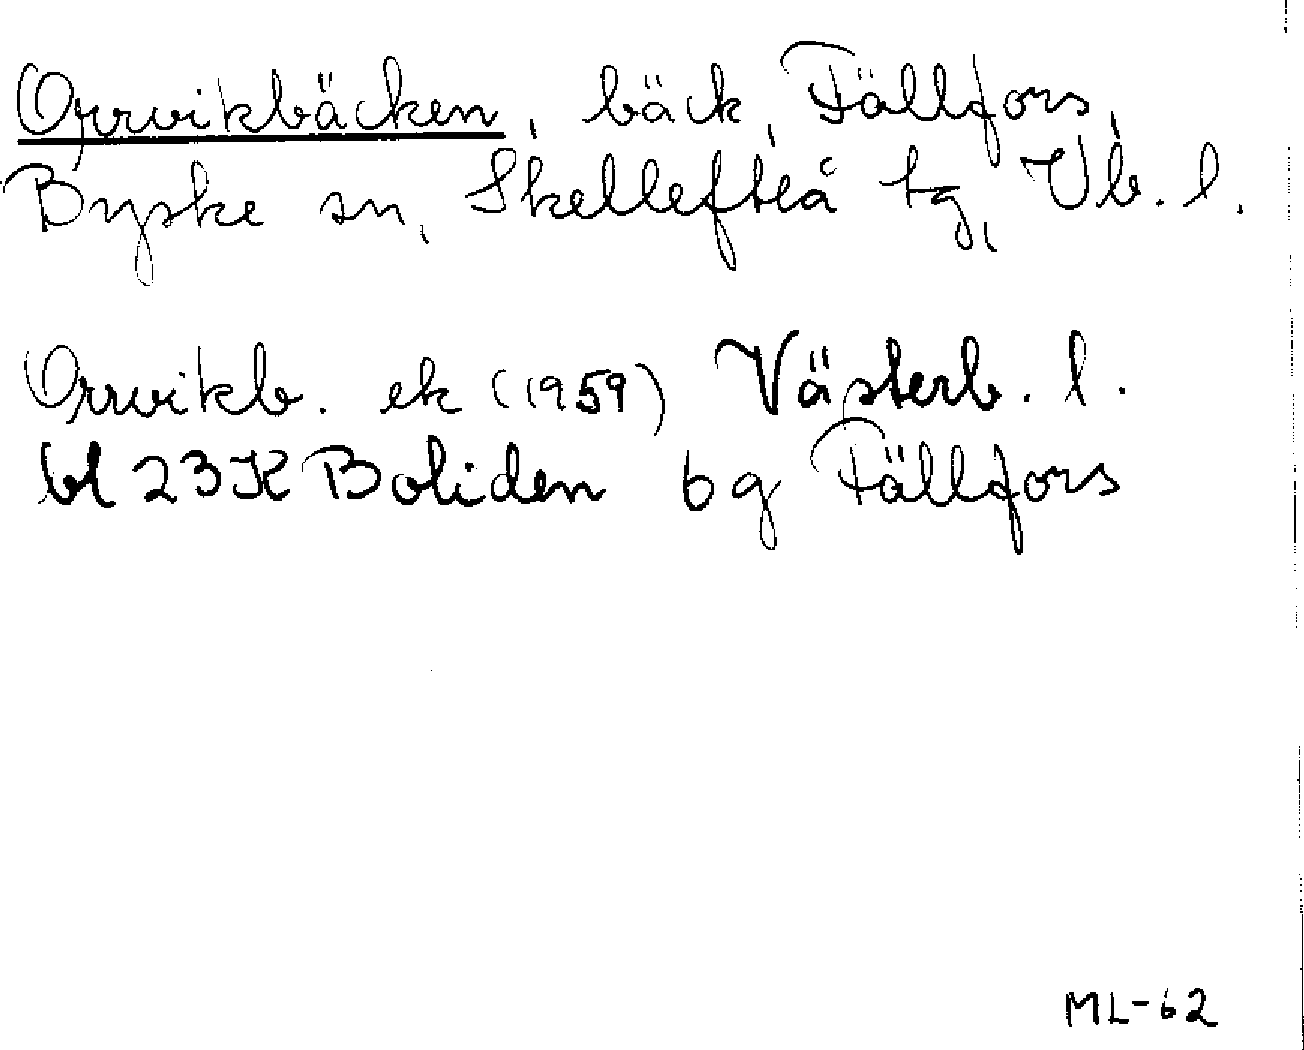 Orrvikbäcken, bäck, Fällfors,
Byske sn, Skellefteå tg, Vb. l.
Orrvikb. ek (1959) Västerb. l.
bl 23K Boliden 6g Fällfors
ML-62